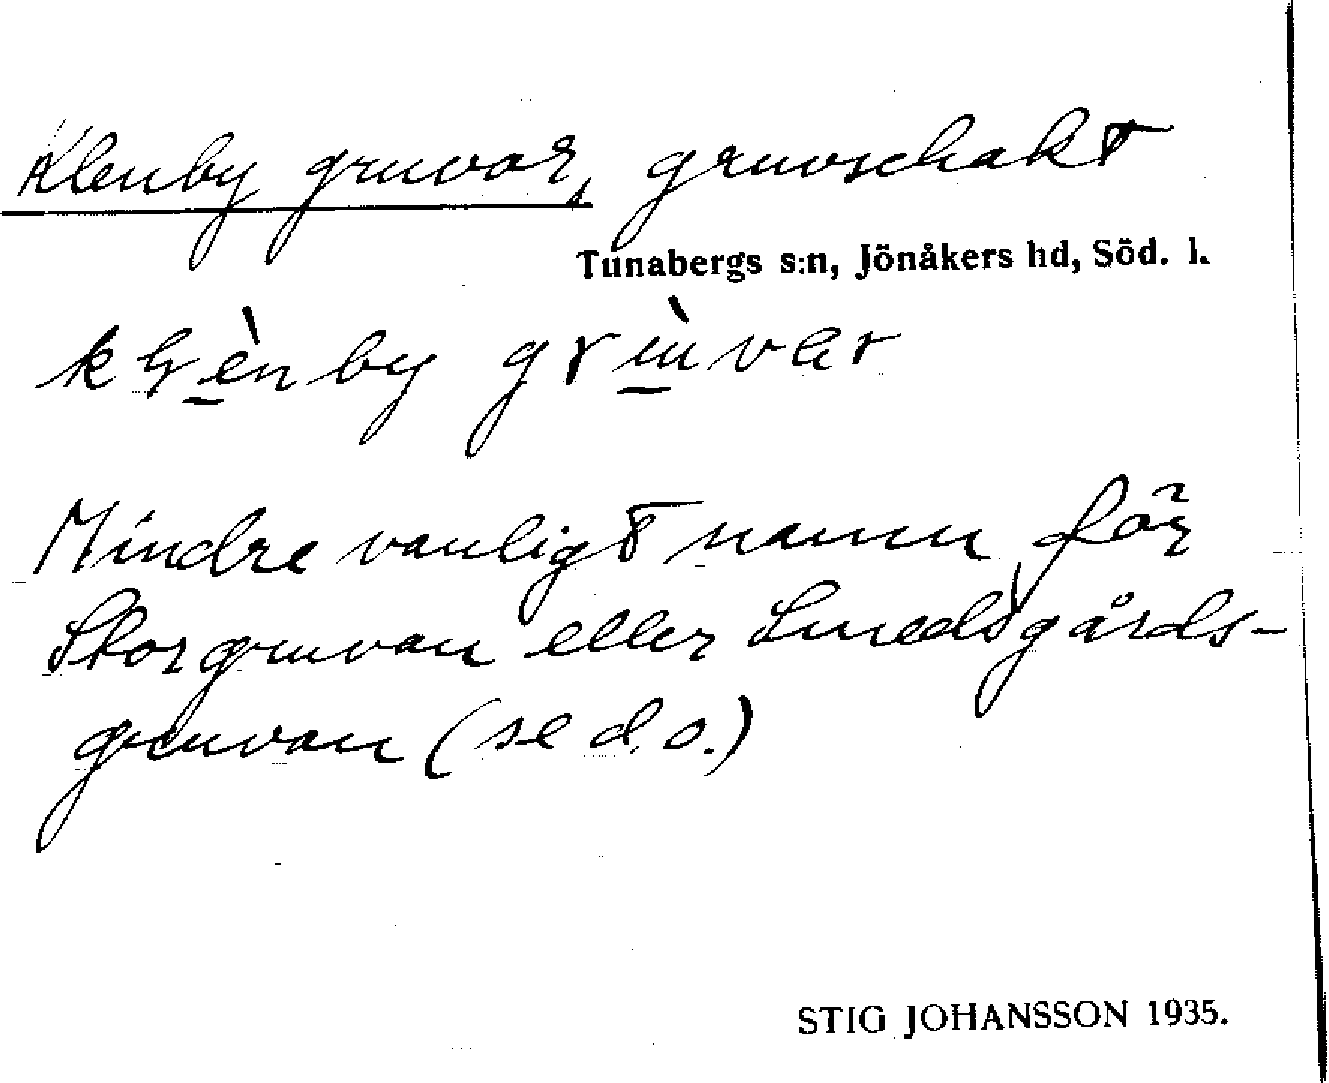 Klenby gruvor, gruvschakt
Tunabergs s:n, Jönåkers hd, Söd. l.
gruvar
Mindre vanligt namn för
Storgruvan eller Smedsgårds-
gruvan (se d.o.)
STIG JOHANSSON 1935.